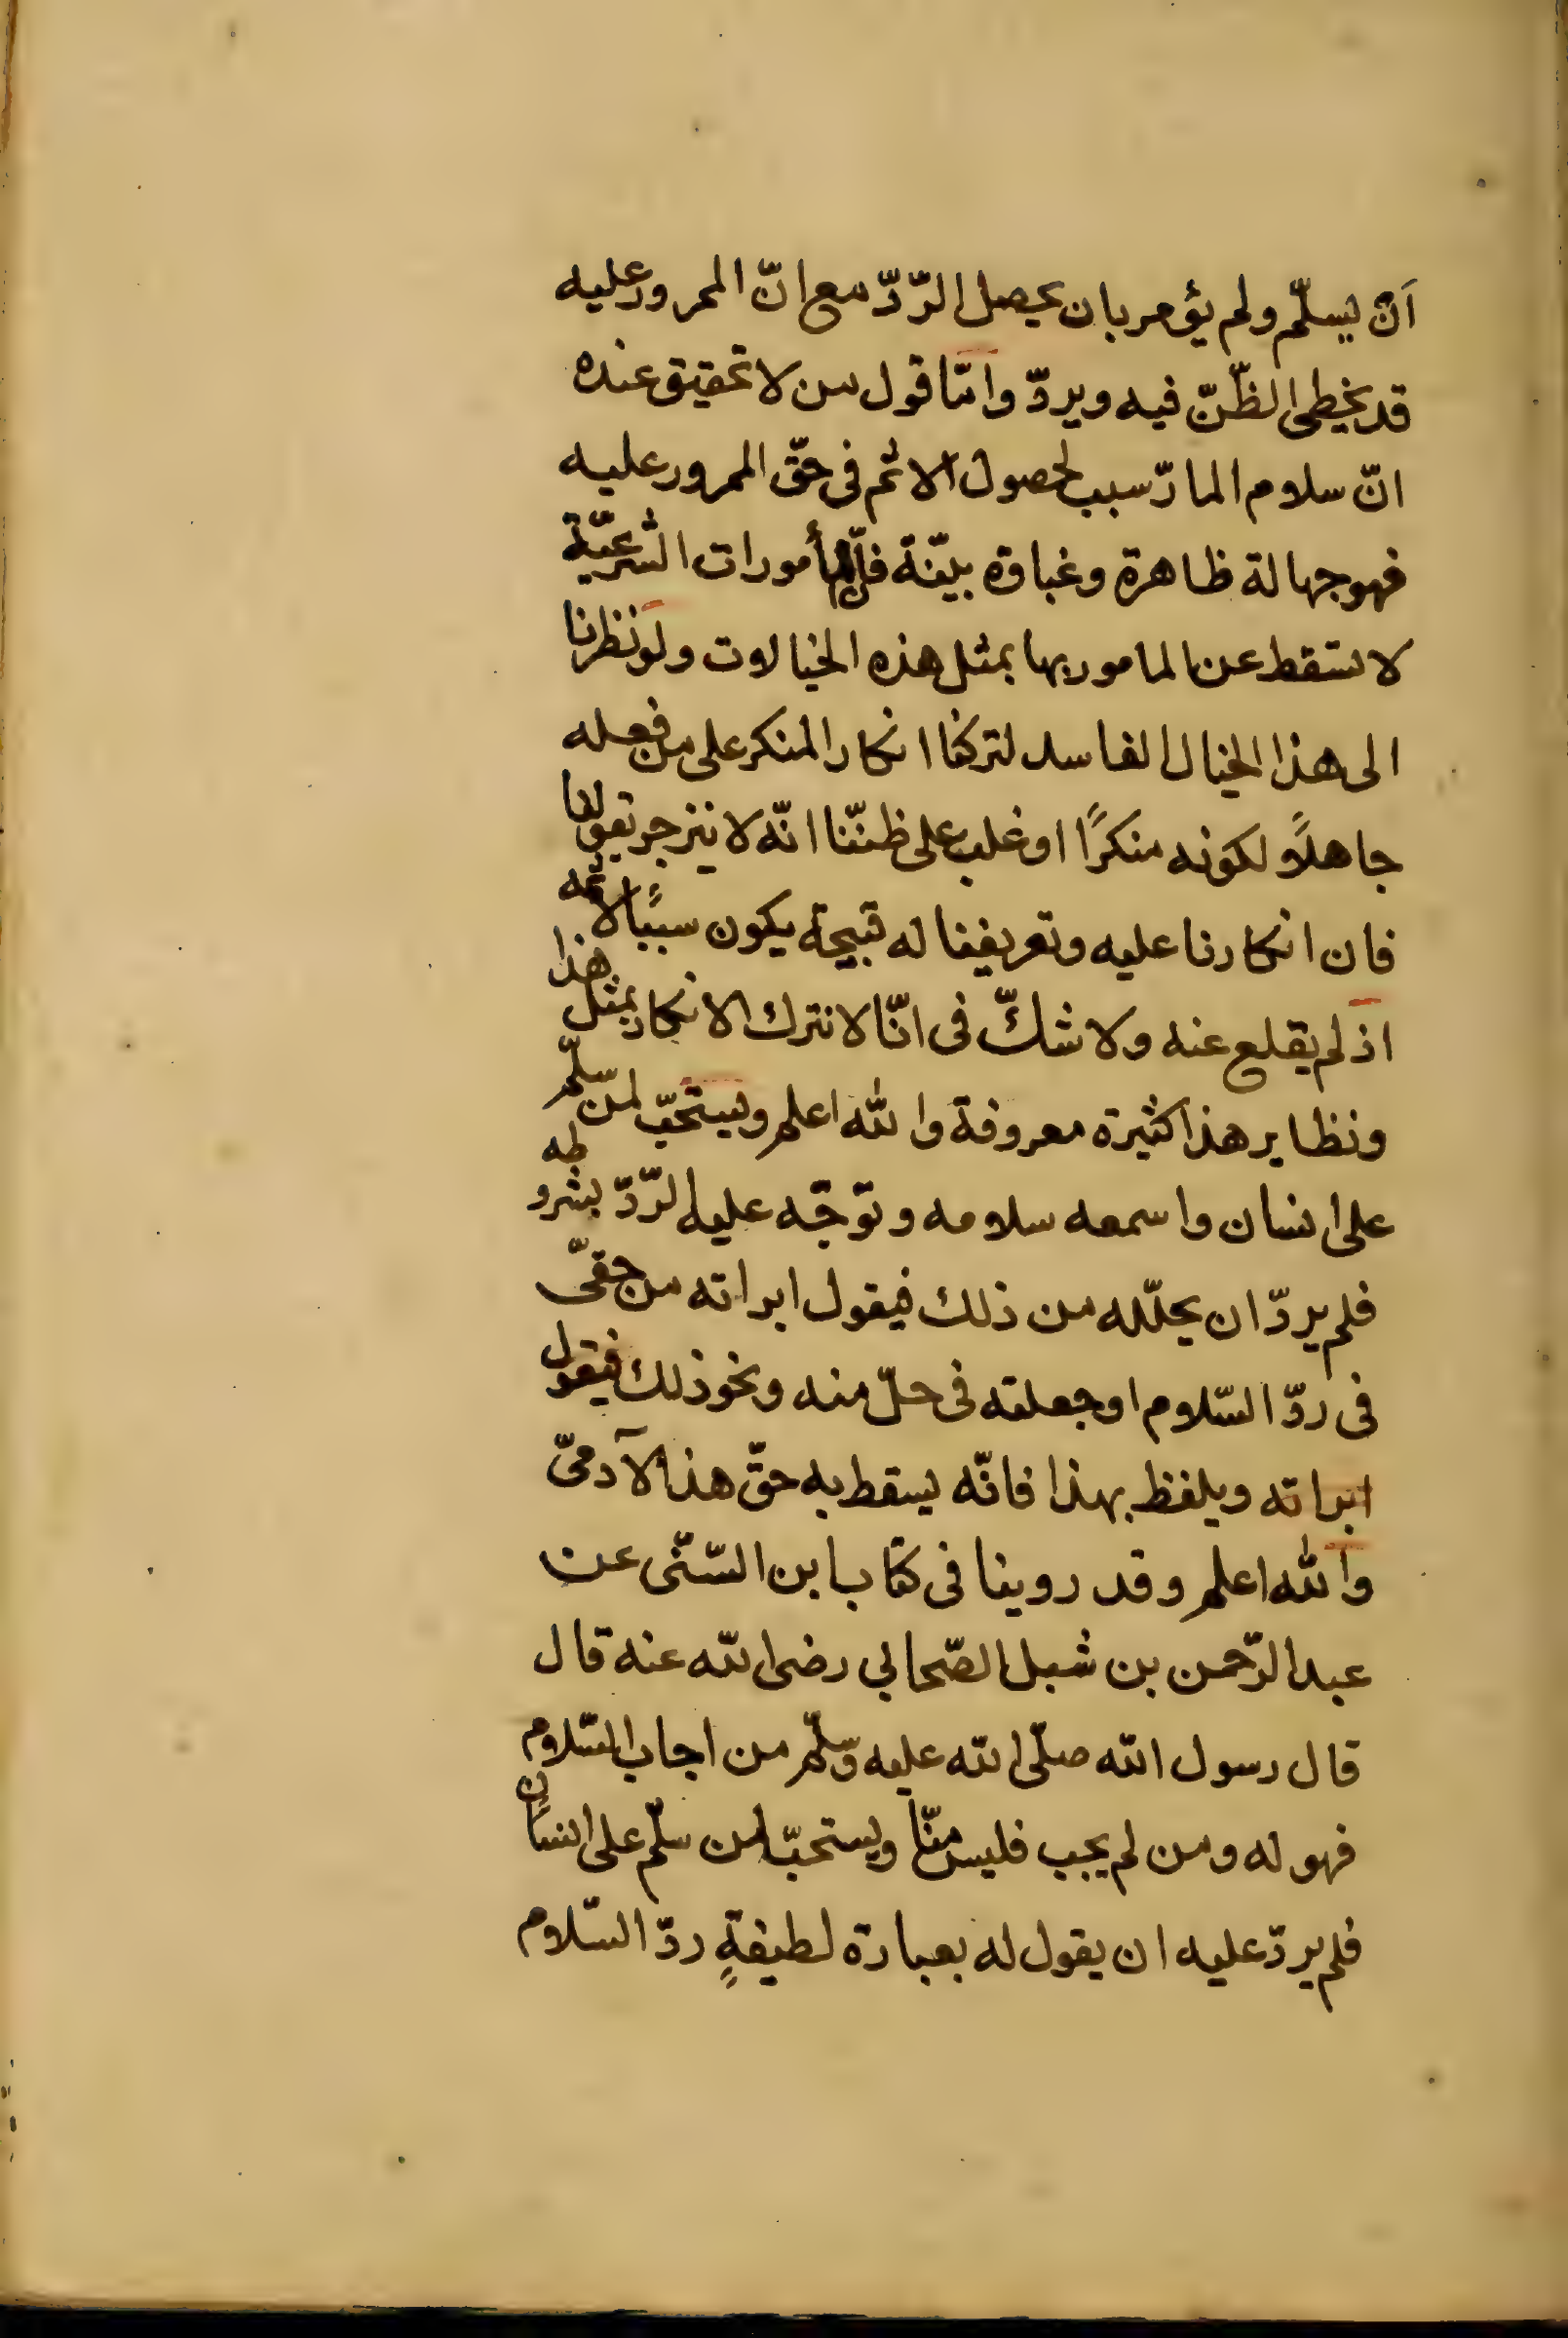 اَنْ يسلّم ولم يؤمر بان يحصل الرّدّ مع انّ الممرور عليه
قد يخطى الظّنّ فيه ويردّ وامّا قول من لا تحقيق عنده
انّ سلام المارّ سبب لحصول الاثم فى حقّ الممرور عليه
فهو جهالة ظاهرة وغباوة بيّنة فانّ المأمورات الشّرعيّة
لا تسقط عن المامور بها بمثل هذه الخيالات ولو نظرنا
الى هذا الخيال الفاسد لتركنا انكار المنكر على من فعله
جاهلًا لكونه منكرًا او غلب على ظننّا انّه لا ينزجر بقولنا
فان انكارنا عليه وتعريفنا له قبيحة يكون سببًا لاثمه
اذ لم يقلع عنه ولا شكّ فى انّا لا نترك الانكار بمثل هذا
ونظاير هذا كثيرة معروفة والله اعلم ويستحبّ لمن سلّم
على انسان واسمعه سلامه وتوجّه عليه الرّدّ بشروطه
فلم يردّ ان يحلّله من ذلك فيقول ابراته من حقّى
فى ردّ السّلام او جعلته فى حلّ منه ونحو ذلك فيقول
ابراته ويلفظ بهذا فانّه يسقط به حقّ هذا الآدمىّ
والله اعلم وقد روينا فى كتاب ابن السّنّى عن
عبد الرّحمن بن شبل الصّحابي رضى الله عنه قال
قال رسول الله صلّى الله عليه وسلّم من اجاب السّلام
فهو له ومن لم يجب فليس منّا ويستحبّ لمن سلّم على انسان
فلم يردّ عليه ان يقول له بعبارة لطيفةٍ ردّ السّلام